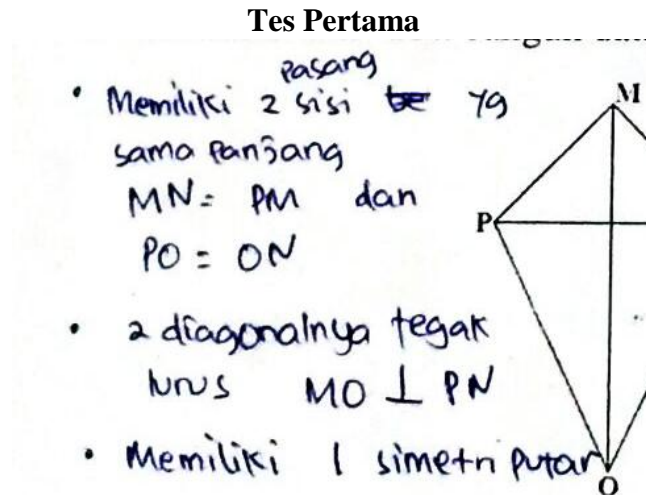 Tes Pertama
pasang
• Memiliki 2 sisi yg
sama panjang
MN = PM dan
PO = ON
• 2 diagonalnya tegak
lurus MO ⊥ PN
• Memiliki 1 simetri putar
M
P
O